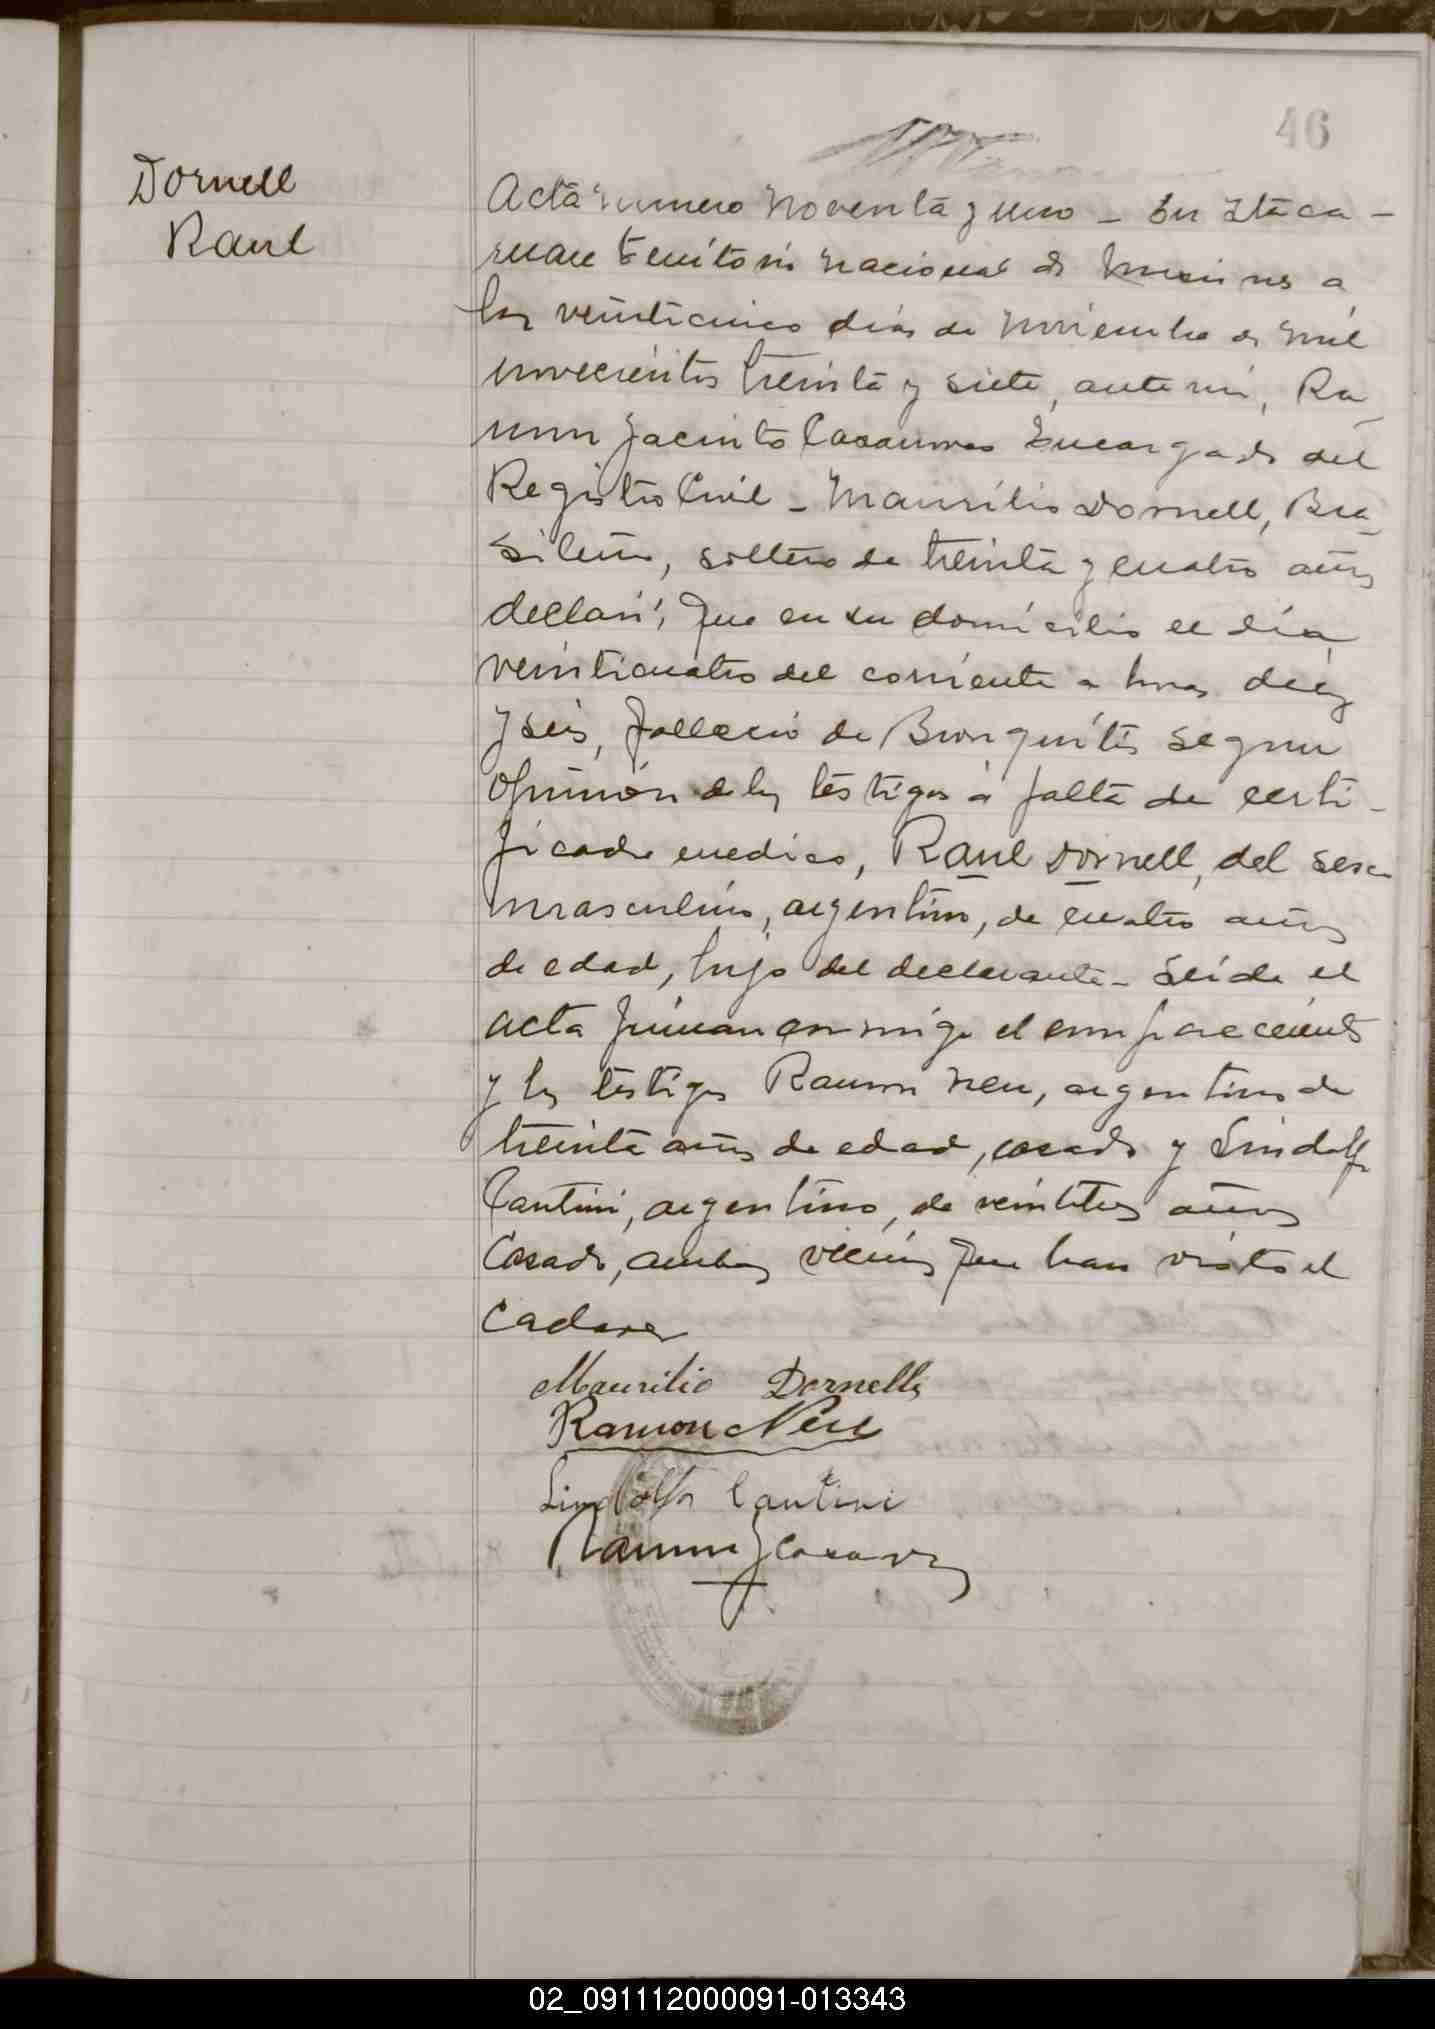 46
Dornell
Raul
Acta numero noventa y uno - En Itaca-
ruare territorio nacional de Misiones a
los veinticinco dias de Noviembre de mil
novecientos treinta y siete, ante mi, Ra-
mon Jacinto Casanova Encargado del
Registro Civil - Maurilio Dornell, Bra-
sileño, soltero de treinta y cuatro años
declaró; Que en su domicilio el día
veinticuatro del corriente a horas diez
y seis, falleció de Bronquitis segun
opinión de los testigos a falta de certi-
ficado medico, Raul Dornell, del sexo
masculino, argentino, de cuatro años
de edad, hijo del declarante - Leida el
acta firman conmigo el compareciente
y los testigos Ramon Neu, argentino de
treinta años de edad, casado y Lindolfo
Cantini, argentino, de veintitres años
Casado, ambos vecinos que han visto el
Cadaver
Maurilio Dornelli
Ramon Neu
Lindolfo Cantini
Ramon J Casanova
02_091112000091-013343